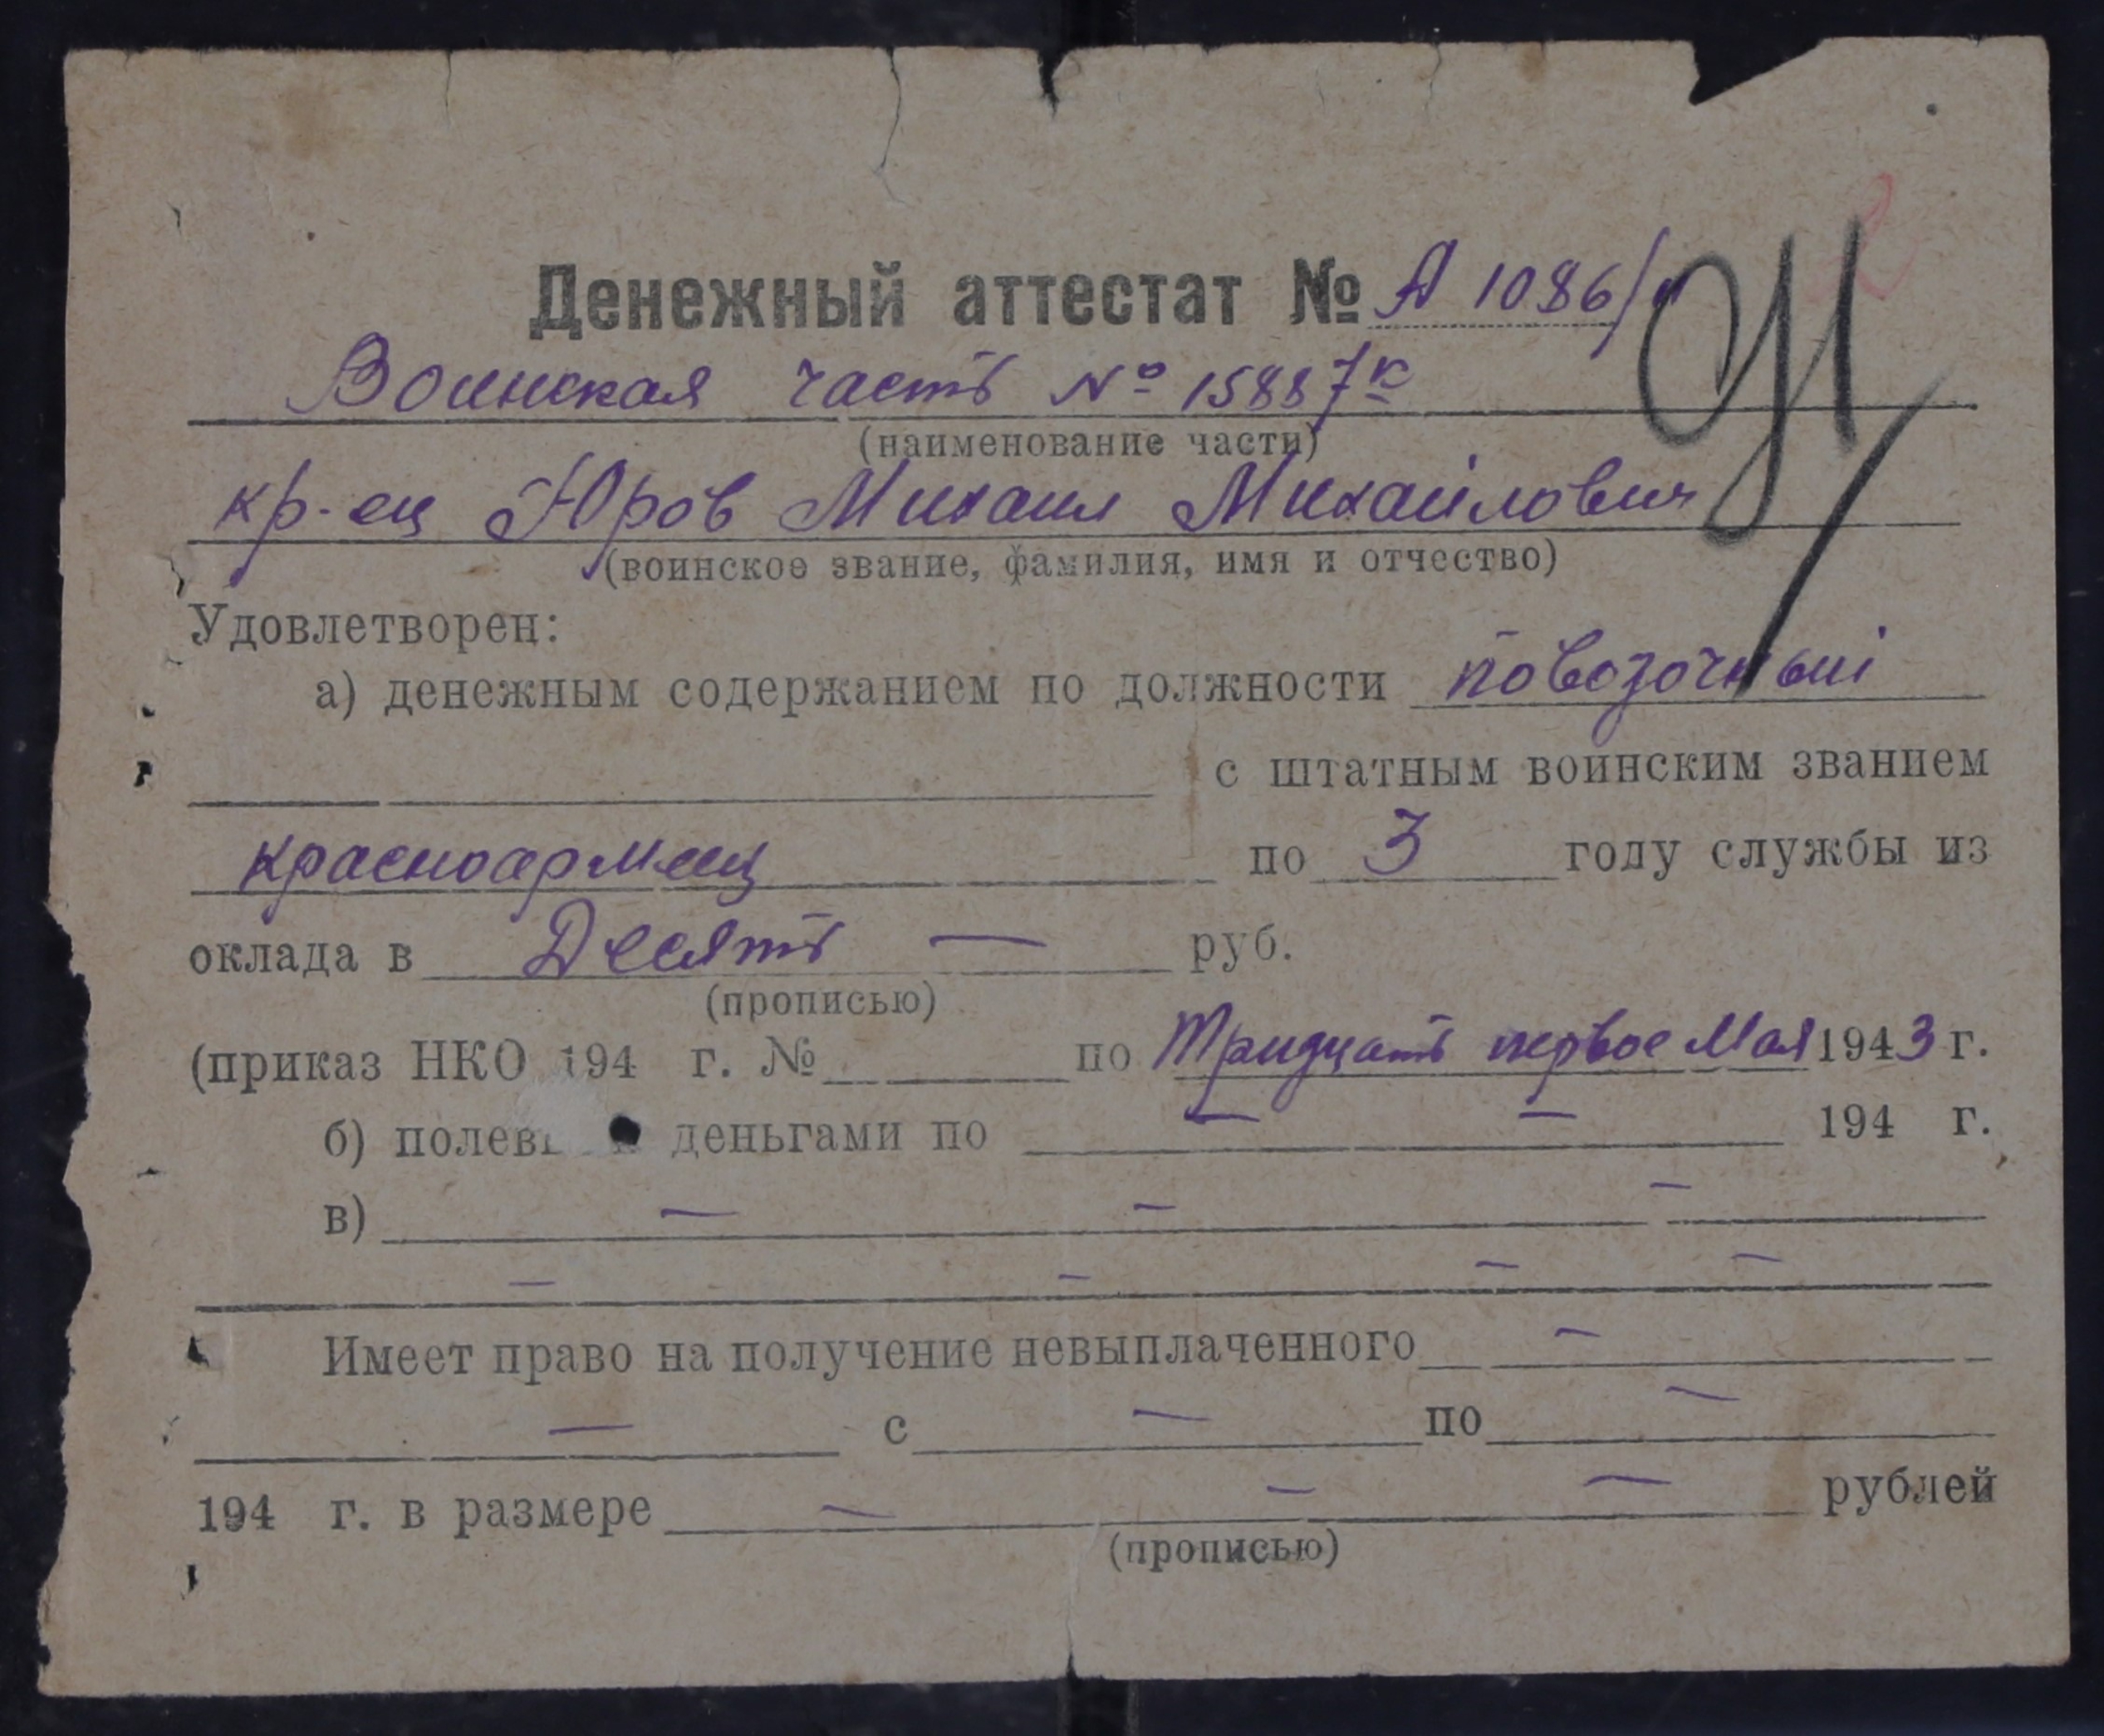 Денежный аттестат № А 1086/
Воинская часть № 15887к
(наименование части)
кр-ец Юров Михаил Михайлович
(воинское звание, фамилия, имя и отчество)
Удовлетворен:
а) денежным содержанием по должности повозочный
с штатным воинским званием
красноармеец по 3 году службы из
оклада в Десять — руб.
(прописью)
(приказ НКО 194 г. № по Тридцать первое Мая 1943 г.
б) полев деньгами по — — 194 г.
в) — — —
— — — —
Имеет право на получение невыплаченного —
— с — по —
194 г. в размере — — — рублей
(прописью)